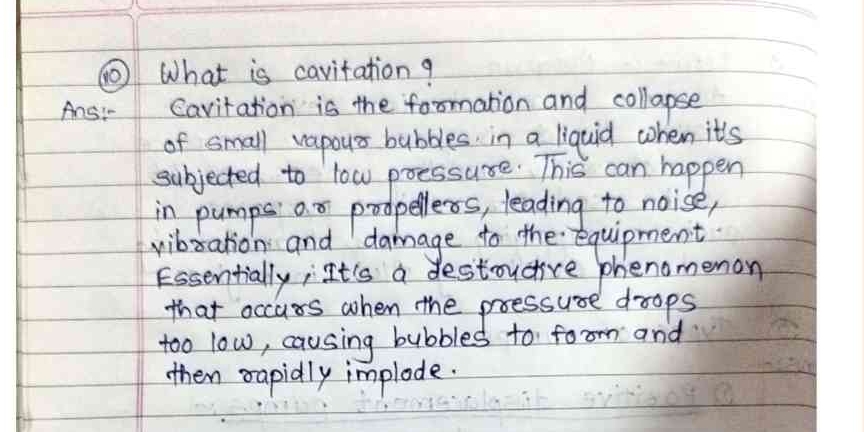 10 What is cavitation?
Ans:- Cavitation is the formation and collapse
of small vapour bubbles in a liquid when it's
subjected to low pressure. This can happen
in pumps or propellers, leading to noise,
vibration and damage to the equipment.
Essentially, It's a destructive phenomenon
that occurs when the pressure drops
too low, causing bubbles to form and
then rapidly implode.